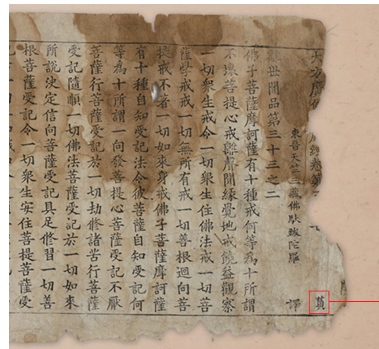 大方廣
東晉天竺三藏佛馱跋陀羅 譯
世間品第三十三之二
佛子菩薩摩訶薩有十種戒何等為十所謂
不壞菩提心戒離聲聞緣覺地戒饒益觀察
一切衆生戒令一切衆生住佛法戒一切菩
薩學戒戒一切無所有戒一切善根迴向菩
提戒不著一切如來身戒佛子菩薩摩訶薩
有十種自知受記法令彼菩薩自知受記何
等為十所謂一向發菩提心菩薩受記不厭
菩薩行菩薩受記於一切劫修諸苦行菩薩
受記隨順一切佛法菩薩受記於一切如來
所說決定信向菩薩受記具足修習一切善
根菩薩受記令一切衆生安住菩提菩薩受